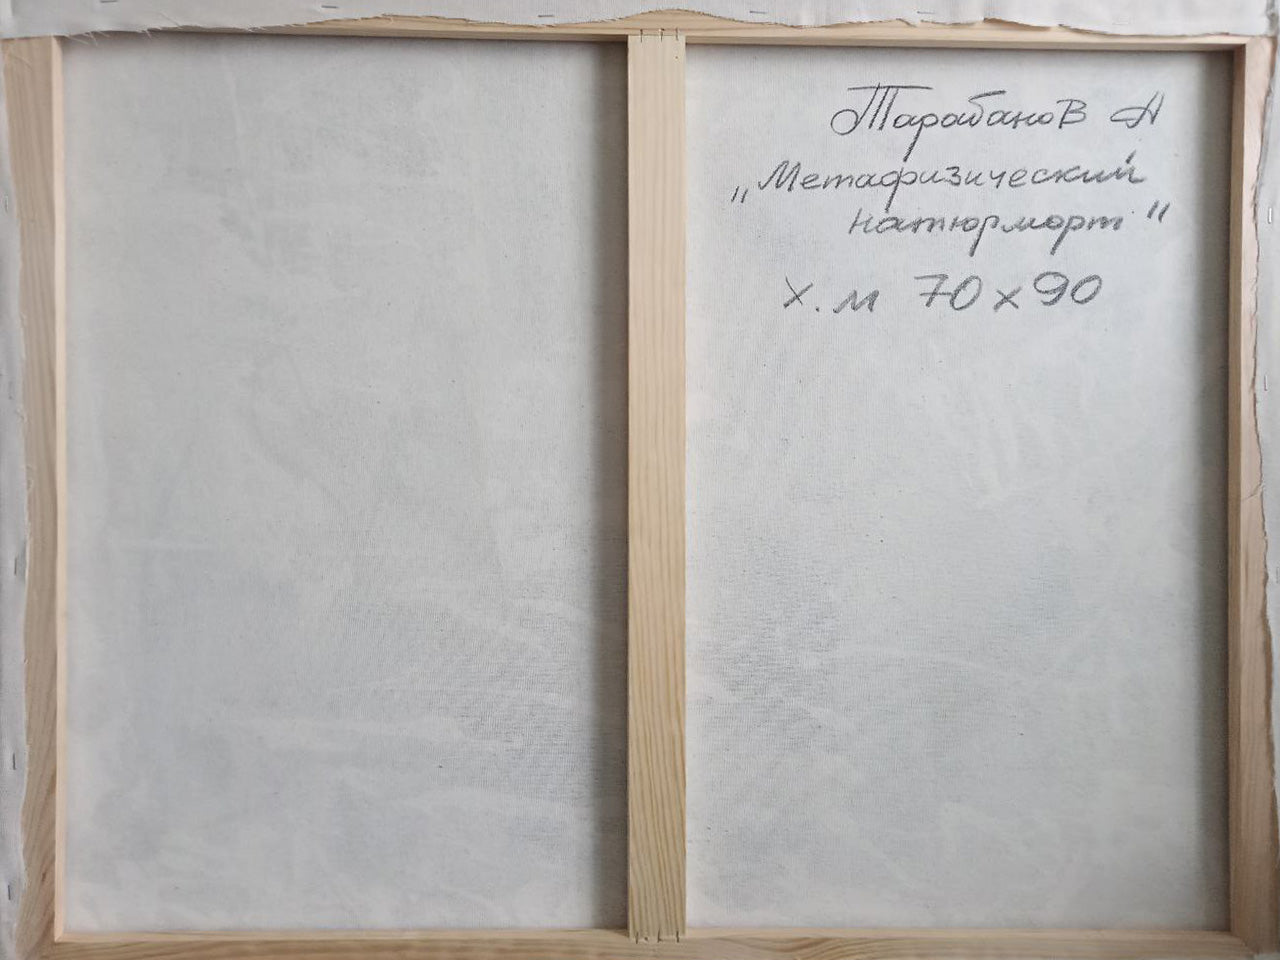 Тарабанов А
„Метафизический
натюрморт"
х.м 70х90